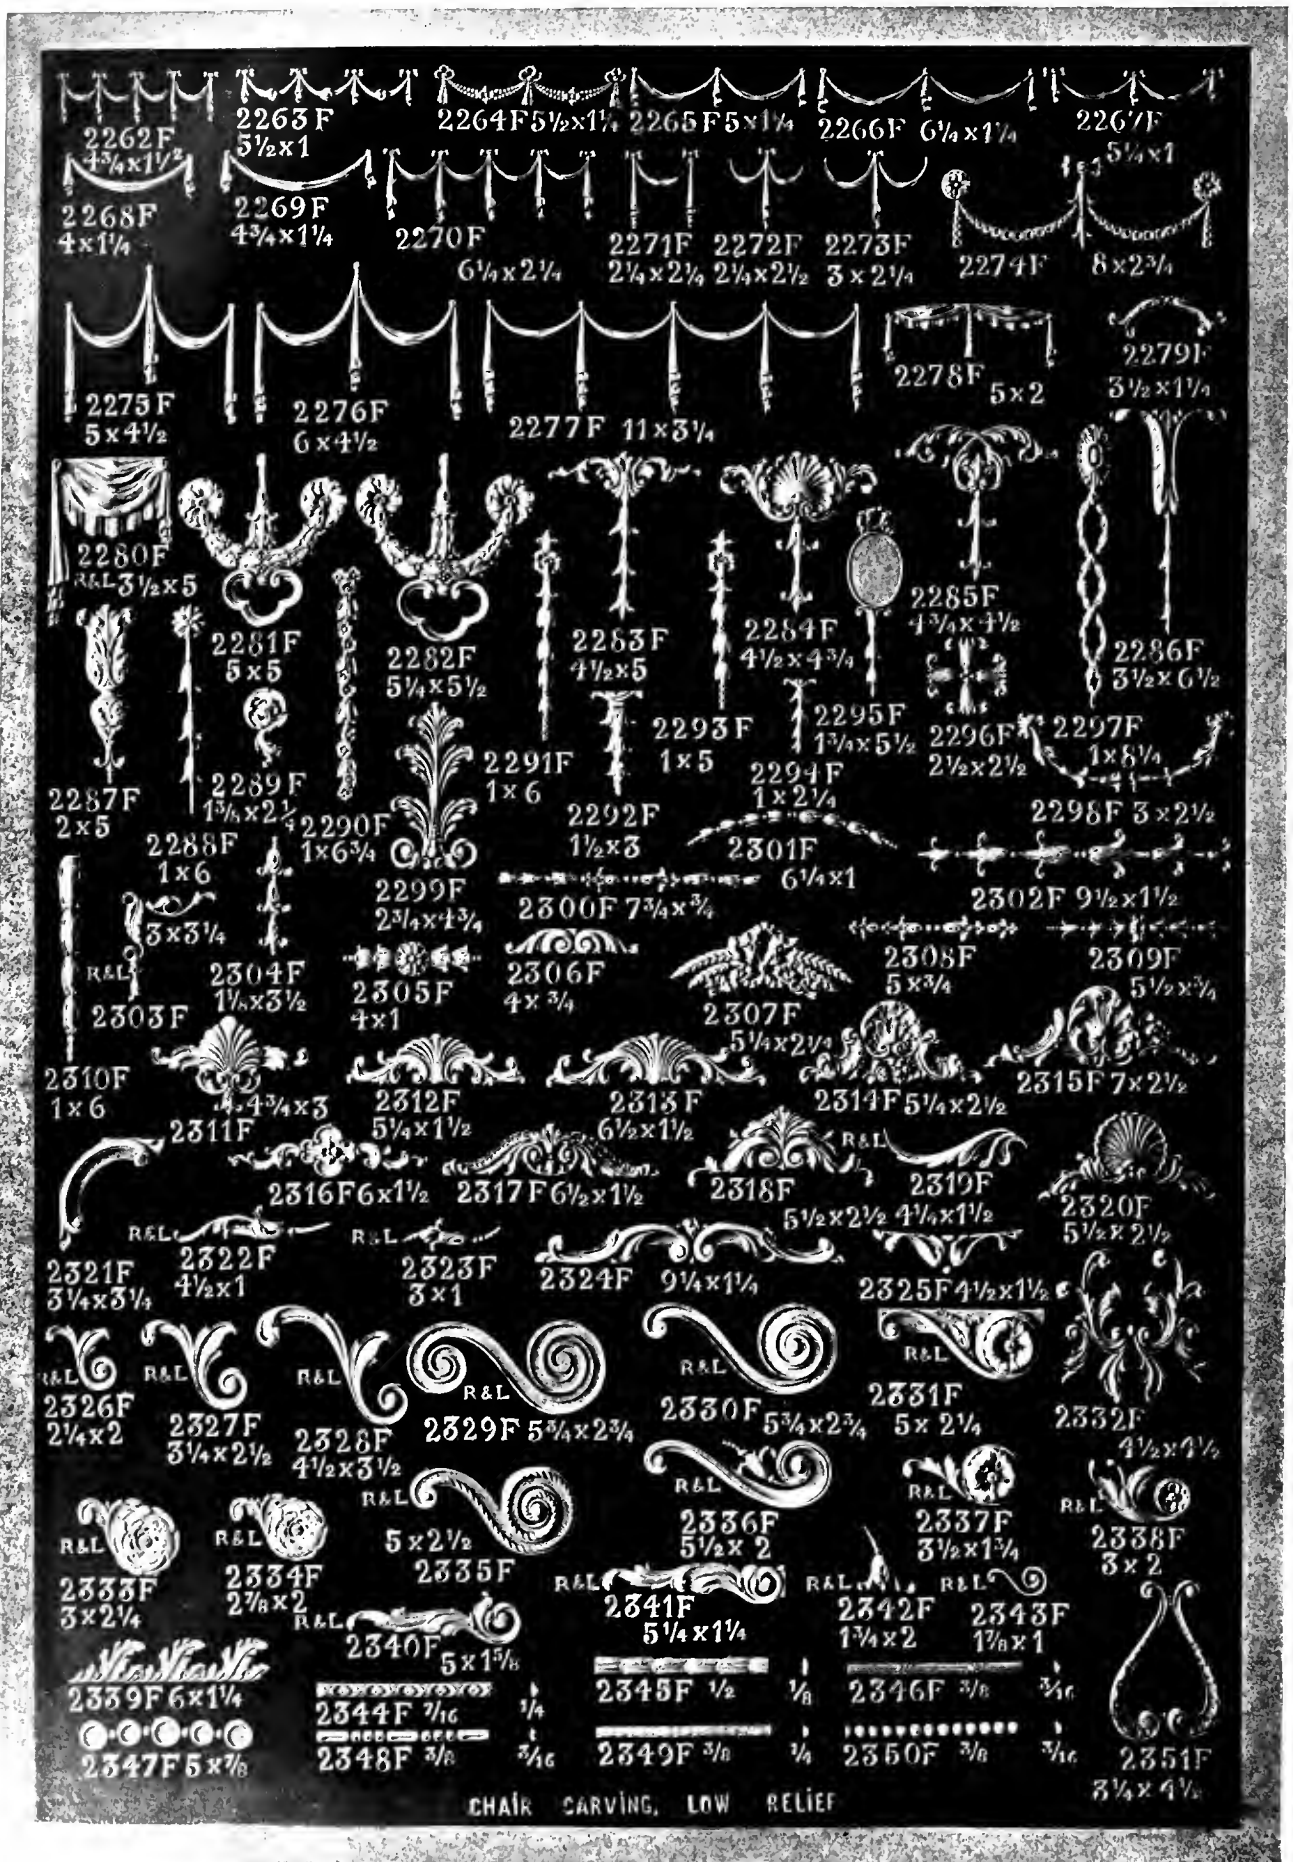 2262F
4¾x1½
2263F
5½x1
2264F 5½x1¼
2265F 5x1¼
2266F 6¼x1¼
2267F
5¼x1
2268F
4x1¼
2269F
4¾x1¼
2270F
6¼x2¼
2271F
2¼x2¼
2272F
2¼x2½
2273F
3x2¼
2274F 8x2¾
2275F
5x4½
2276F
6x4½
2277F 11x3¼
2278F 5x2
2279F
3½x1¼
2280F
R&L 3½x5
2281F
5x5
2282F
5¼x5½
2283F
4½x5
2284F
4½x4¾
2285F
4¾x4½
2286F
3½x6½
2287F
2x5
2288F
1x6
2289F
2290F
1x6¾
2291F
1x6
2292F
1½x3
2293F
1x5
2294F
1x2¼
2295F
1¾x5½
2296F
2½x2½
2297F
1x8¼
2298F 3x2½
2299F
2¾x4¾
2300F 7¾x¾
2301F
6¼x1
2302F 9½x1½
3x3¼
R&L
2303F
2304F
1⅛x3½
2305F
4x1
2306F
4x¾
2307F
5¼x2¼
2308F
5x¾
2309F
5½x¾
2310F
1x6
4¾x3
2311F
2312F
5¼x1½
2313F
6½x1½
2314F 5¼x2½
2315F 7x2½
2316F 6x1½
2317F 6½x1½
2318F
5½x2½
R&L
2319F
4¼x1½
2320F
5½x2½
2321F
3¼x3¼
R&L
2322F
4½x1
R&L
2323F
3x1
2324F 9¼x1¼
2325F 4½x1½
R&L
2326F
2¼x2
R&L
2327F
3¼x2½
R&L
2328F
4½x3½
R&L
2329F 5¾x2¾
R&L
2330F 5¾x2¾
R&L
2331F
5x2¼
2332F
4½x4½
R&L
2333F
3x2¼
R&L
2334F
2⅞x2
R&L
5x2½
2335F
R&L
2336F
5½x2
R&L
2337F
3½x1¾
R&L
2338F
3x2
2339F 6x1¼
R&L
2340F 5x1⅝
R&L
2341F
5¼x1¼
R&L
2342F
1¾x2
R&L
2343F
1⅞x1
2344F 7/16 ¼
2345F ½ ⅛
2346F ⅜ 3/16
2347F 5x⅞
2348F ⅜ 3/16
2349F ⅜ ¼
2350F ⅜ 3/16
2351F
3¼x4½
CHAIR CARVING, LOW RELIEF